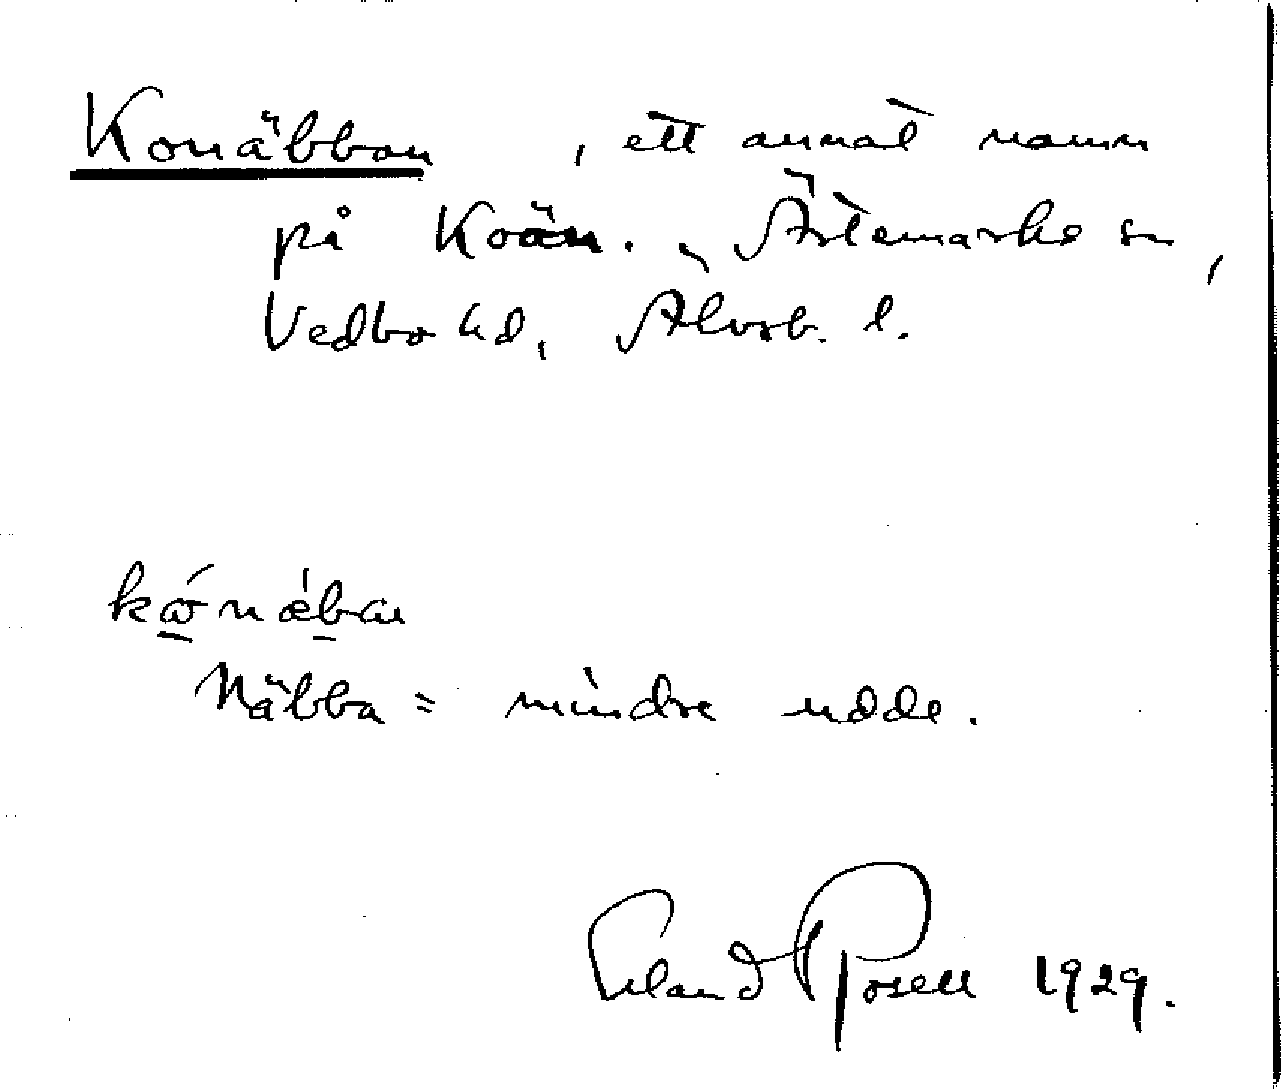 Konäbban, ett annat namn
på Koän. Ärtemarks sn,
Vedbo hd, Älvsb. l.
Näbba = mindre udde.
Erland Rosell 1929.